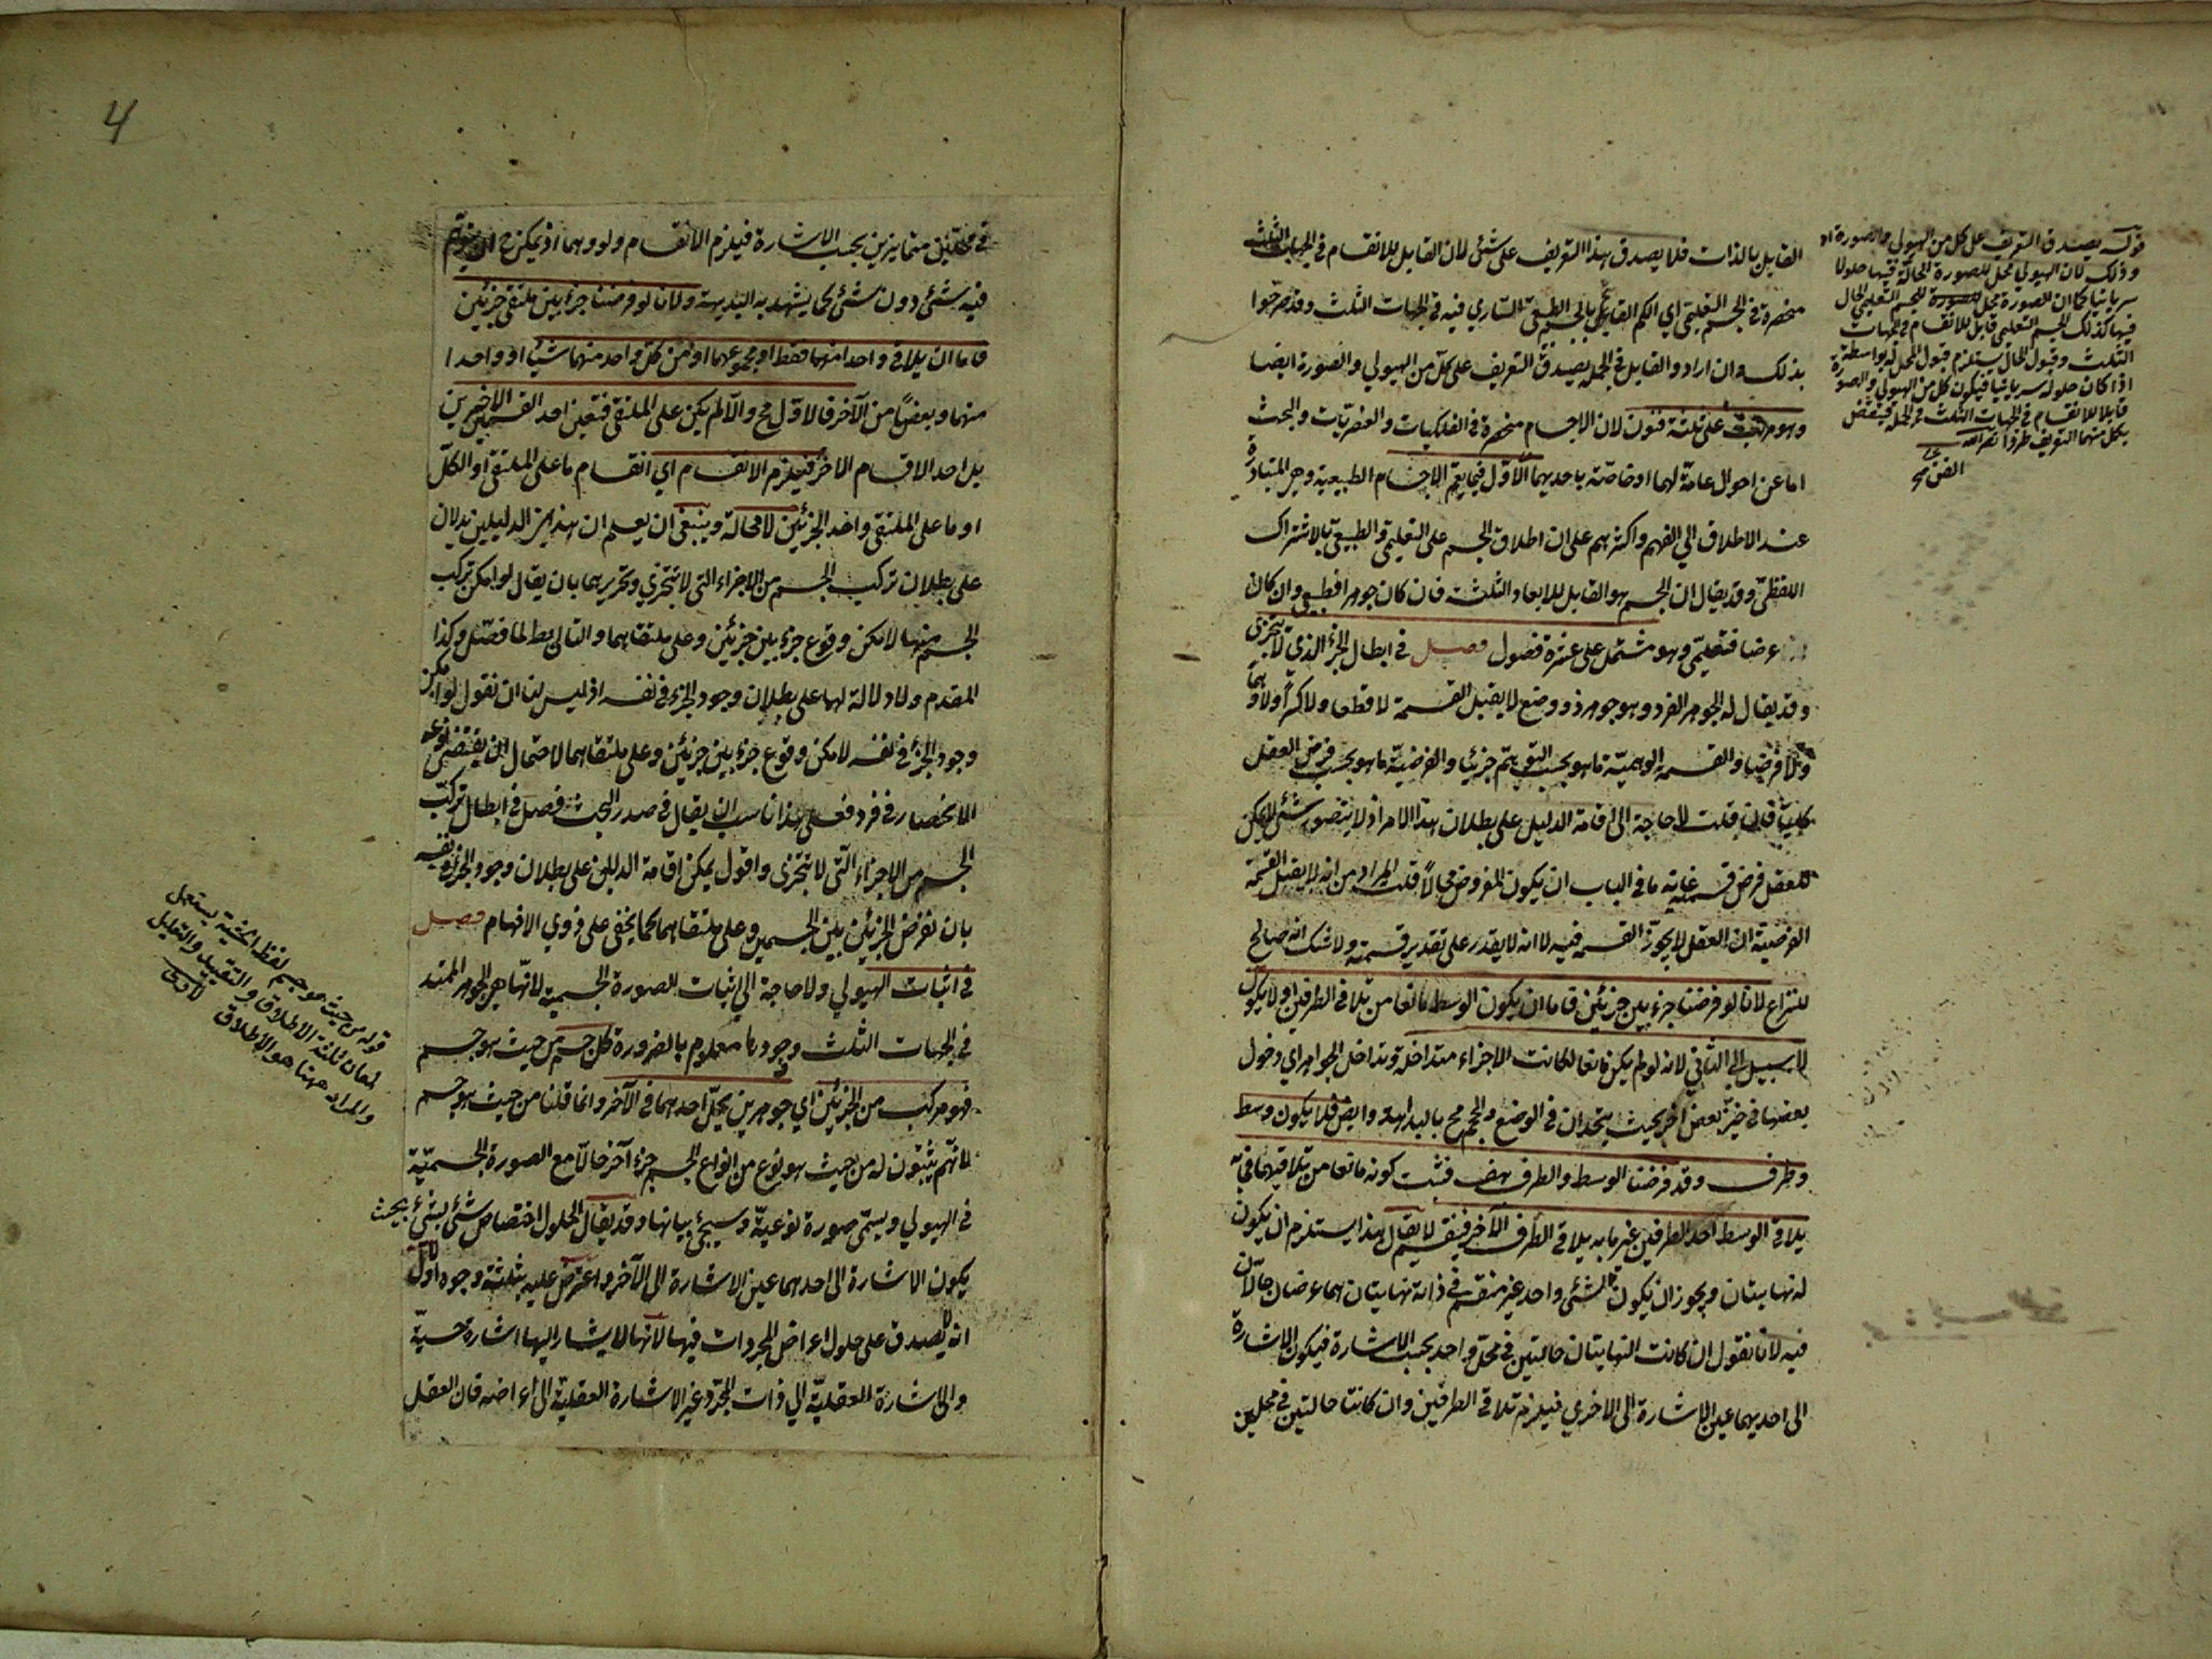 القابل بالذات فلا يصدق هذا التعريف على شئ لان القابل للانقسام في الجهات الثلث
منحصرة في الجسم التعليمي اي الكم القايم بالجسم الطبيعي الساري فيه في الجهات الثلث وقد صرحوا
بذلك وان ارادوا القابل في الجملة يصدق التعريف على كل من الهيولي والصورة ايضا
وهو مرتب على ثلثة فنون لان الاجسام منحصرة في الفلكيات والعنصريات والبحث
اما عن احوال عامة لهما او خاصة باحديهما الاول فيما يعم الاجسام الطبيعية وهي المتبادرة
عند الاطلاق الي الفهم واكثرهم على ان اطلاق الجسم على التعليمي والطبيعي بالاشتراك
اللفظي وقد يقال ان الجسم هو القابل للابعاد الثلثة فان كان جوهرا فطبيعي وان كان
عرضا فتعليمي وهو مشتمل على عشرة فصول فصل في ابطال الجزء الذي لا يتجزى
وقد يقال له الجوهر الفرد وهو جوهر ذو وضع لا يقبل القسمة لا قطعا ولا كسرا ولا وهما
ولا فرضيا والقسمة الوهمية ما هو بحسب التوهم جزئيا والفرضية ما هو بحسب فرض العقل
كليا فان قلت لا حاجة الى اقامة الدليل على بطلان هذا الامر اذ لا يتصور شئ لا يمكن
للعقل فرض قسمته غاية ما في الباب ان يكون المفروض محالا قلت المراد من انه لا يقبل القسمة
الفرضية ان العقل لا يجوز القسمة فيه لا انه لا يقدر على تقدير قسمته ولا شك انه صالح
للنزاع لانا لو فرضنا جزء بين جزئين فاما ان يكون الوسط مانعا من تلاقي الطرفين او لا يكون
لا سبيل الي الثاني لانه لو لم يكن مانعا لكانت الاجزاء متداخلة وتداخل الجواهر اي دخول
بعضها في حيز بعض اخر بحيث يتحدان في الوضع والحجم مح بالبداهة وايض فلا يكون وسط
وطرف وقد فرضنا الوسط والطرف هف فثبت كونه مانعا من تلاقيهما فما به
يلاقي الوسط احد الطرفين غير ما به يلاقي الطرف الآخر فينقسم لا يقال هذا يستلزم ان يكون
له نهايتان ويجوز ان يكون لشئ واحد غير منقسم في ذاته نهايتان هما عرضان حالان
فيه لانا نقول ان كانت النهايتان حالتين في محل واحد بحسب الاشارة فيكون الاشارة
الى احديهما عين الاشارة الى الاخري فيلزم تلاقي الطرفين وان كانتا حالتين في محلين
قوله يصدق التعريف على كل من الهيولي والصورة اه
وذلك لان الهيولي محل للصورة الحالة فيها حلولا
سريانيا كما ان الصورة محل للجسم التعليمي الحال
فيها كذلك الجسم التعليمي قابل للانقسام في الجهات
الثلث وقبول الحال يستلزم قبول المحل له بواسطة
اذا كان حلوله سريانيا فيكون كل من الهيولي والصورة
قابلا للانقسام في الجهات الثلث في الجملة فينتقض
بكل منهما التعريف طردا
الفن
4
في محلين متمايزين بحسب الاشارة فيلزم الانقسام ولو وهما اذ يمكن ح ان يتوهم
فيه شئ دون شئ كما يشهد به البديهة ولانا لو فرضنا جزء بين ملتقى جزئين
فاما ان يلاقي واحدا منهما فقط او مجموعهما او من كل واحد منهما شيئا او واحدا
منهما وبعضا من الآخر فالاول مح والا لم يكن على الملتقى فتعين احد القسمين الاخيرين
بل احد الاقسام الاخر فيلزم الانقسام اي انقسام ما على الملتقى او الكل
او ما على الملتقى واحد الجزئين لا محالة وينبغي ان يعلم ان هذين الدليلين يدلان
على بطلان تركيب الجسم من الاجزاء التي لا تتجزي وتحريرهما بان يقال لو امكن تركب
الجسم منها لامكن وقوع جزء بين جزئين وعلى ملتقاهما والتالي بط لما فصل وكذا
المقدم ولا دلالة لهما على بطلان وجود الجزء في نفسه اذ ليس لنا ان نقول لو امكن
وجود الجزء في نفسه لامكن وقوع جزء بين جزئين وعلى ملتقاهما لاحتمال ان يقتضي نوعه
الانحصار في فرد فعلى هذا ناسب ان يقال في صدر البحث فصل في ابطال تركب
الجسم من الاجزاء التي لا تتجزى واقول يمكن اقامة الدليلين على بطلان وجود الجزء في نفسه
بان نفرض الجزئين بين الجسمين وعلى ملتقاهما كما يخفى على ذوي الافهام فصل
في اثبات الهيولي ولا حاجة الي اثبات الصورة الجسمية لانها هي الجوهر الممتد
في الجهات الثلث وجودها معلوم بالضرورة كل جسم من حيث هو جسم
فهو مركب من الجزئين اي جوهرين يحل احدهما في الآخر وانما قلنا من حيث هو جسم
لانهم يثبتون له من حيث هو نوع من انواع الجسم جزء آخر حالا مع الصورة الجسمية
في الهيولي ويسمى صورة نوعية وسيجئ بيانها وقد يقال الحلول اختصاص شئ بشئ بحيث
يكون الاشارة الى احدهما عين الاشارة الى الآخر واعترض عليه بثلثة وجوه الاول
انه لا يصدق على حلول اعراض المجردات فيها لانها لا يشار اليها اشارة حسية
والاشارة العقلية الي ذات المجرد غير الاشارة العقلية الى اعراضه فان العقل
قوله من حيث هو جسم لفظ الحيثية يستعمل
لمعان ثلثة الاطلاق والتقييد والتعليل
والمراد ههنا هو الاطلاق